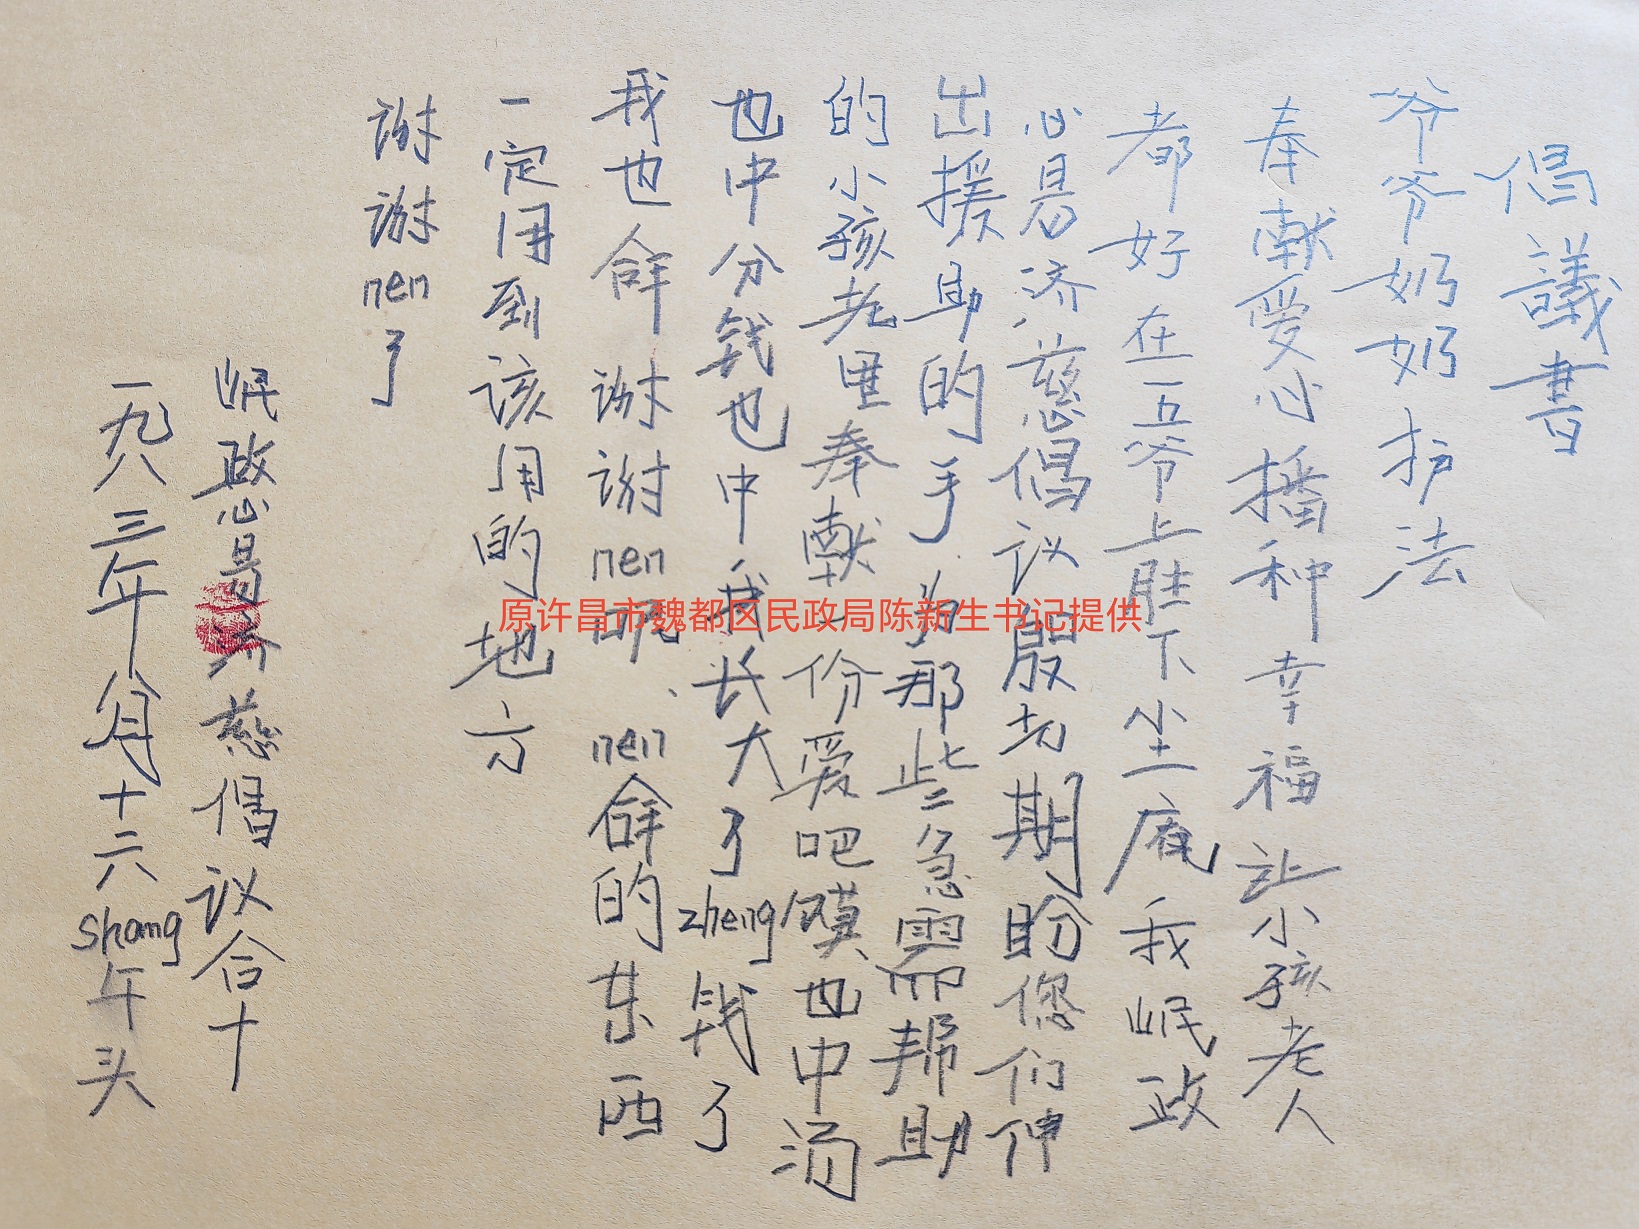 倡議書
爷爷奶奶护法
奉献爱心播种幸福让小孩老人
都好在五爷上肚下尘庙我岷政
心易济慈倡议殷切期盼您们伸
出援助的手为那些急需帮助
的小孩老里奉献一份爱吧馍也中汤
也中分钱也中我长大了zheng钱了
我也龠谢谢nen呢、nen龠的东西
一定用到该用的地方
谢谢nen了
岷政心易济慈倡议合十
一九八三年八月十六shang午头
原许昌市魏都区民政局陈新生书记提供